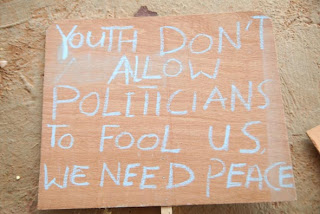 YOUTH DON'T
ALLOW
POLITICIANS
TO FOOL US,
WE NEED PEACE